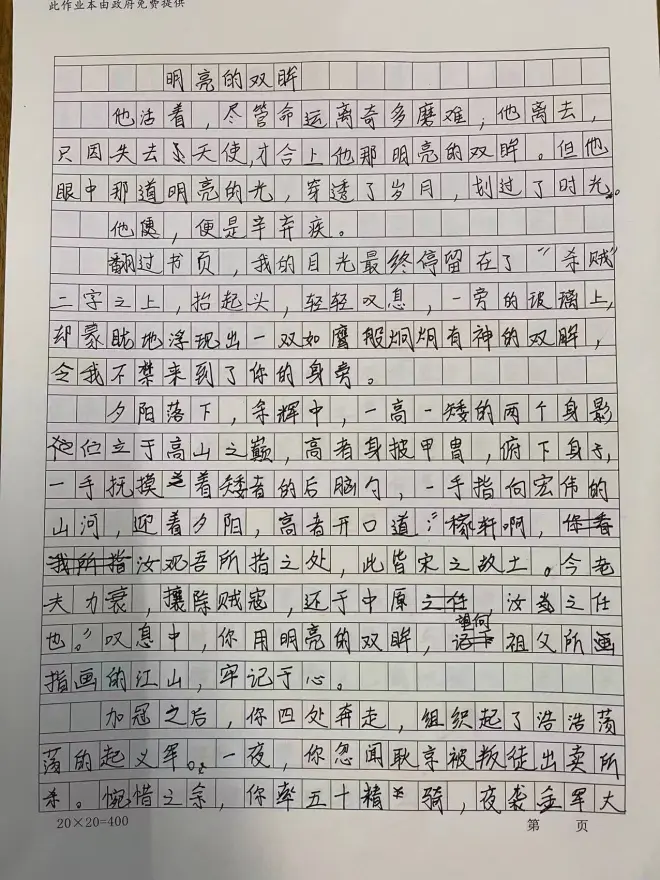 此作业本由政府免费提供
明亮的双眸
他活着，尽管命运离奇多磨难；他离去，
只因失去了天使，才合上他那明亮的双眸。但他
眼中那道明亮的光，穿透了岁月，划过了时光。
他，便是辛弃疾。
翻过书页，我的目光最终停留在了“杀贼”
二字之上，抬起头，轻轻叹息，一旁的玻璃上，
却蒙眬地浮现出一双如鹰般炯炯有神的双眸，
令我不禁来到了你的身旁。
夕阳落下，余辉中，一高一矮的两个身影
伫立于高山之巅，高者身披甲胄，俯下身子，
一手抚摸着矮者的后脑勺，一手指向宏伟的
山河，迎着夕阳，高者开口道：“稼轩啊，
汝观吾所指之处，此皆宋之故土。今老
夫力衰，攘除贼寇，还于中原，汝之任
也。”叹息中，你用明亮的双眸，望向祖父所
指画的江山，牢记于心。
加冠之后，你四处奔走，组织起了浩浩荡
荡的起义军。一夜，你忽闻耿京被叛徒出卖所
杀。惋惜之余，你率五十精骑，夜袭金军大
20×20=400
第 页